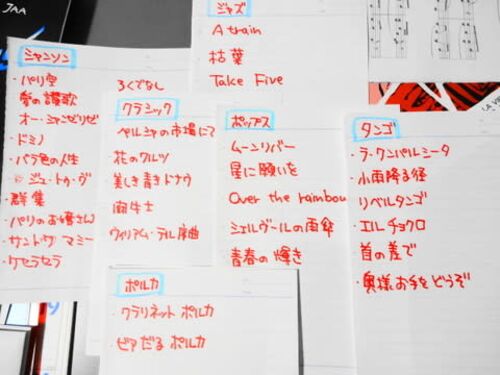 JAA
ジャズ
A train
枯葉
Take Five
シャンソン
・パリ空
愛の讃歌
オー・シャンゼリゼ
・ドミノ
・バラ色の人生
ジュ・トゥ・ヴ
・群集
・パリのお嬢さん
・サントワ マミー
・ケセラセラ
ろくでなし
クラシック
ペルシャの市場にて
・花のワルツ
・美しき青きドナウ
・闘牛士
・ウィリアム・テル序曲
ポップス
ムーンリバー
星に願いを
Over the rainbow
・シェルブールの雨傘
・青春の輝き
タンゴ
・ラ・クンパルシータ
・小雨降る径
・リベルタンゴ
・エル チョクロ
・首の差で
・奥様お手をどうぞ
ポルカ
・クラリネット ポルカ
・ビアだる ポルカ